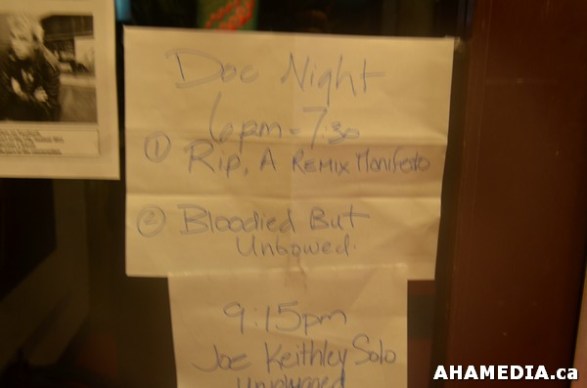 Doc Night
6pm - 730
① Rip, A Remix Manifesto
② Bloodied But
Unbowed.
9:15pm
Joe Keithley Solo
Unplugged
AHAMEDIA.ca